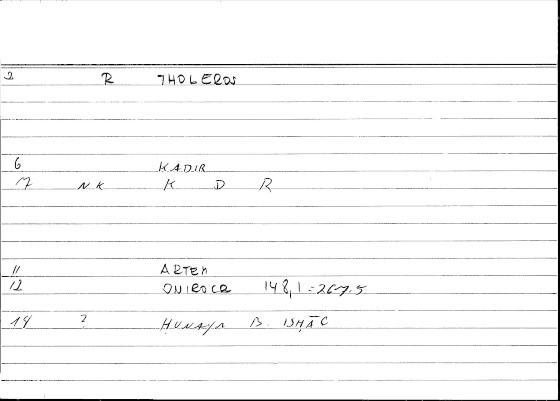 2 R THOLEROS
6 KADIR
17 NK K D R
11 ARTEM
12 ONIROCR 148,1 = 267.5
14 ? ḤUNAYN B. ISḤĀC